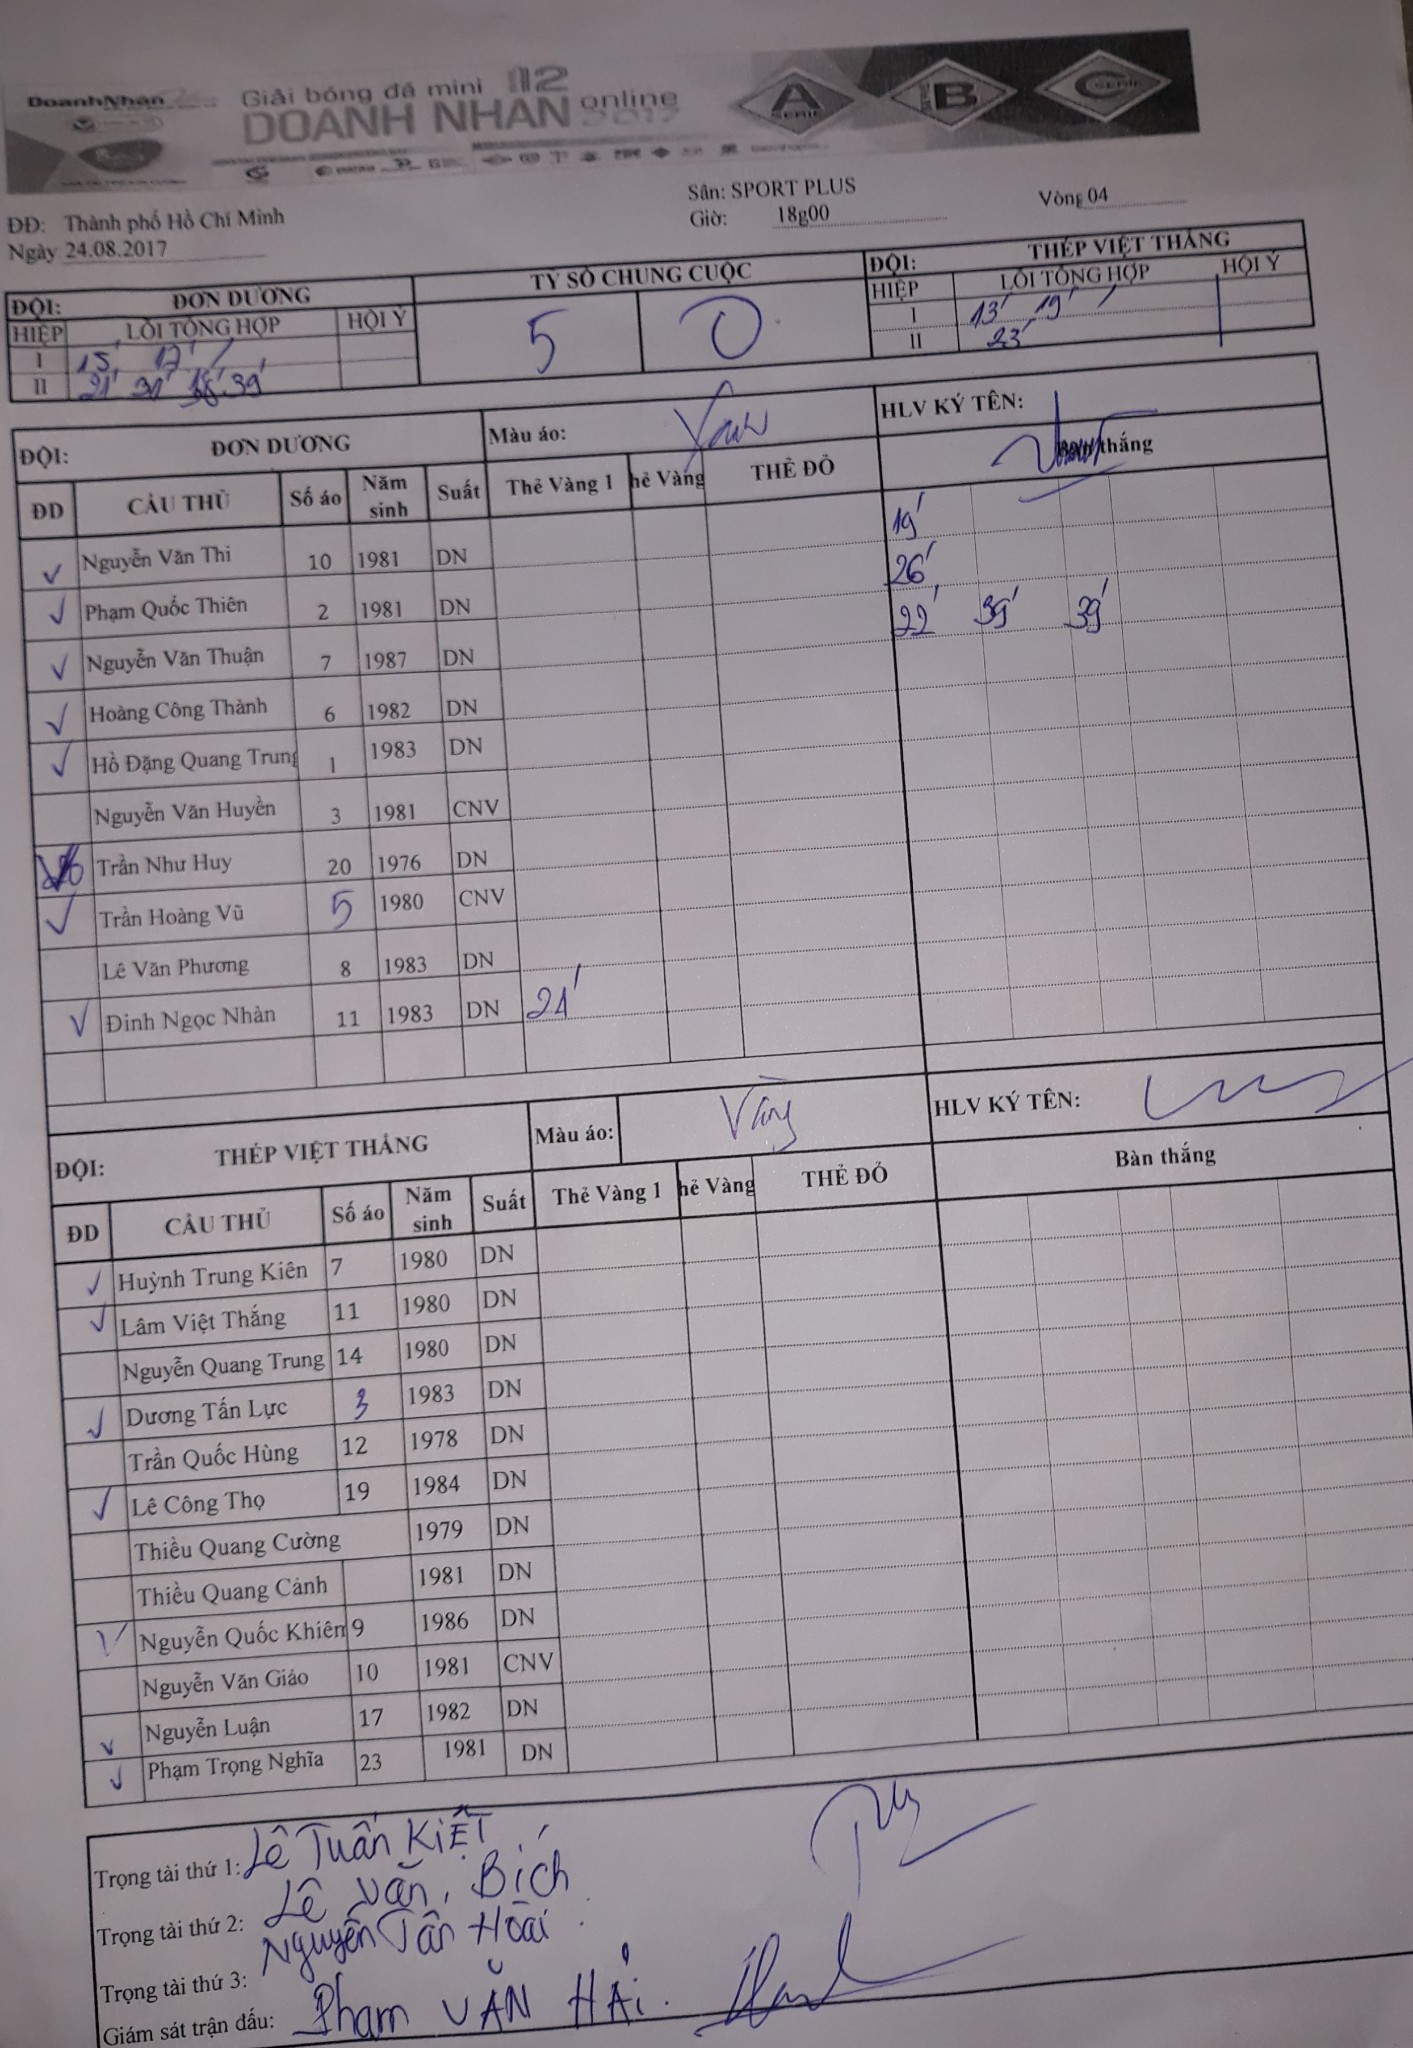 DoanhNhân
Giải bóng đá mini 112
DOANH NHÂN online 2017
A SERIE B C SERIE
Sân: SPORT PLUS
ĐĐ: Thành phố Hồ Chí Minh Giờ: 18g00 Vòng 04
Ngày 24.08.2017
ĐỘI: ĐƠN DƯƠNG TỶ SỐ CHUNG CUỘC ĐỘI: THÉP VIỆT THẮNG
HIỆP LỖI TỔNG HỢP HỘI Ý 5 0 HIỆP LỖI TỔNG HỢP HỘI Ý
I 15' 17' I 13' 19'
II 21' 31' 39' II 23'
ĐỘI: ĐƠN DƯƠNG Màu áo: Xanh HLV KÝ TÊN:
ĐD CẦU THỦ Số áo Năm sinh Suất Thẻ Vàng 1 hẻ Vàng THẺ ĐỎ Bàn thắng
Nguyễn Văn Thi 10 1981 DN 19'
Phạm Quốc Thiên 2 1981 DN 26'
Nguyễn Văn Thuận 7 1987 DN 22' 39' 39'
Hoàng Công Thành 6 1982 DN
Hồ Đặng Quang Trung 1 1983 DN
Nguyễn Văn Huyền 3 1981 CNV
Trần Như Huy 20 1976 DN
Trần Hoàng Vũ 5 1980 CNV
Lê Văn Phương 8 1983 DN
Đinh Ngọc Nhàn 11 1983 DN 21'
ĐỘI: THÉP VIỆT THẮNG Màu áo: Vàng HLV KÝ TÊN:
ĐD CẦU THỦ Số áo Năm sinh Suất Thẻ Vàng 1 hẻ Vàng THẺ ĐỎ Bàn thắng
Huỳnh Trung Kiên 7 1980 DN
Lâm Việt Thắng 11 1980 DN
Nguyễn Quang Trung 14 1980 DN
Dương Tấn Lực 3 1983 DN
Trần Quốc Hùng 12 1978 DN
Lê Công Thọ 19 1984 DN
Thiều Quang Cường 1979 DN
Thiều Quang Cảnh 1981 DN
Nguyễn Quốc Khiêm 9 1986 DN
Nguyễn Văn Giảo 10 1981 CNV
Nguyễn Luận 17 1982 DN
Phạm Trọng Nghĩa 23 1981 DN
Trọng tài thứ 1: Lê Tuấn Kiệt
Trọng tài thứ 2: Lê Văn Bích
Trọng tài thứ 3: Nguyễn Tấn Hoài
Giám sát trận đấu: Phạm Văn Hải